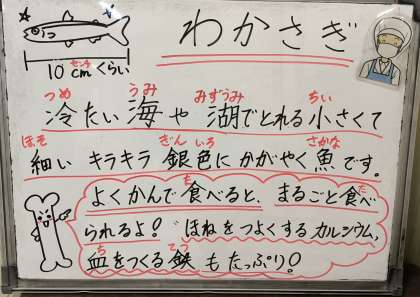 わかさぎ
10cmくらい
センチ
つめ うみ みずうみ ちい
冷たい海や湖でとれる小さくて
ほそ ぎん いろ さかな
細い キラキラ 銀色に かがやく 魚です。
た た
よくかんで食べると、まるごと食べ
られるよ! ほねをつよくするカルシウム、
ち てつ
血をつくる鉄もたっぷり!